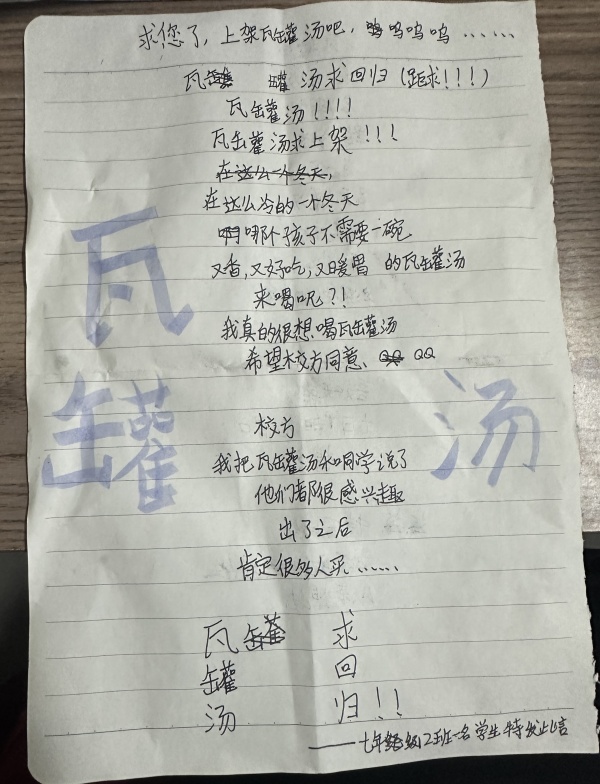 求您了，上架瓦罐汤吧，呜呜呜呜……
瓦罐汤求回归（跪求！！！）
瓦罐汤！！！！
瓦罐汤求上架！！！
在这么一个冬天，
在这么冷的一个冬天
哪个孩子不需要一碗
又香，又好吃，又暖胃 的瓦罐汤
来喝呢？！
我真的很想喝瓦罐汤
希望校方同意、QQ QQ
校方
我把瓦罐汤和同学说了
他们都很感兴趣
出了之后
肯定很多人买……
瓦罐汤
求回归！！
——七年级2班一名学生特发此言
瓦罐汤